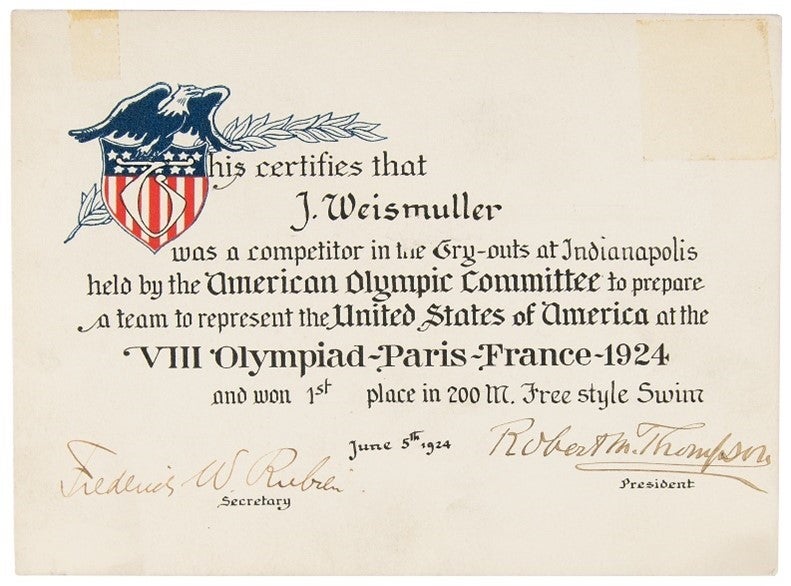 This certifies that
J. Weismuller
was a competitor in the Try-outs at Indianapolis
held by the American Olympic Committee to prepare
a team to represent the United States of America at the
VIII Olympiad-Paris-France-1924
and won 1st place in 200 M. Free style Swim
June 5th, 1924
Frederick W Rubien
Secretary
Robert M. Thompson
President